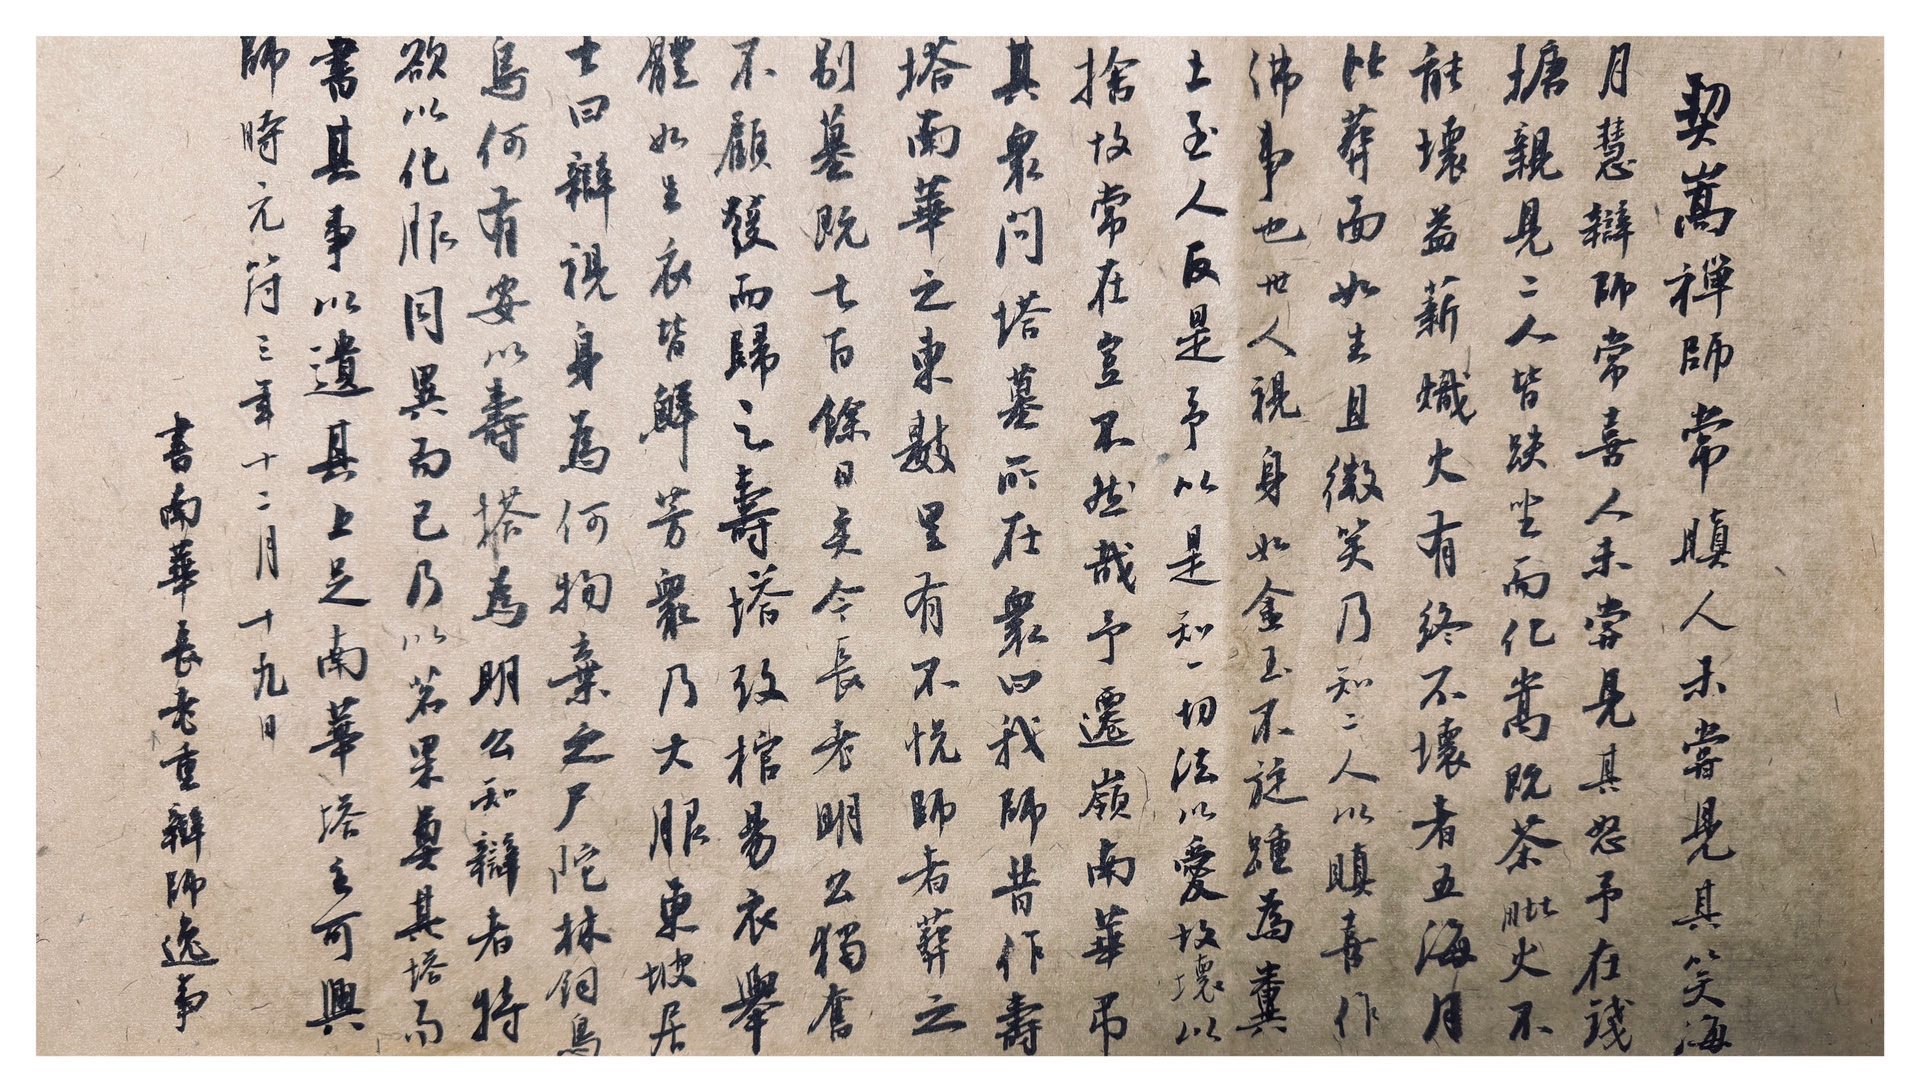 契嵩禪師常瞋人未嘗見其笑海
月慧辯師常喜人未嘗見其怒予在錢
搪親見二人皆趺坐而化嵩既荼毗火不
能壞益薪熾火有終不壞者五海月
比葬面如生且微笑乃知二人以瞋喜作
佛事也世人視身如金玉不旋踵為糞
土至人反是予以是知一切法以愛故壞以
捨故常在豈不然哉予遷嶺南華弔
其衆問塔墓所在衆曰我師昔作壽
塔南華之東數里有不悅師者葬之
別墓既七百餘日矣今長老明公獨奮
不顧發而歸之壽塔改棺易衣舉
體如生衣皆鮮芳衆乃大服東坡居
士曰辯視身為何物棄之尸陀林飼烏
烏何有安以壽塔為明公知辯者特
欲以化服同異而已乃以茗果奠其塔而
書其事以遺其上足南華塔主可興
師時元符三年十二月十九日
書南華長老重辯師逸事